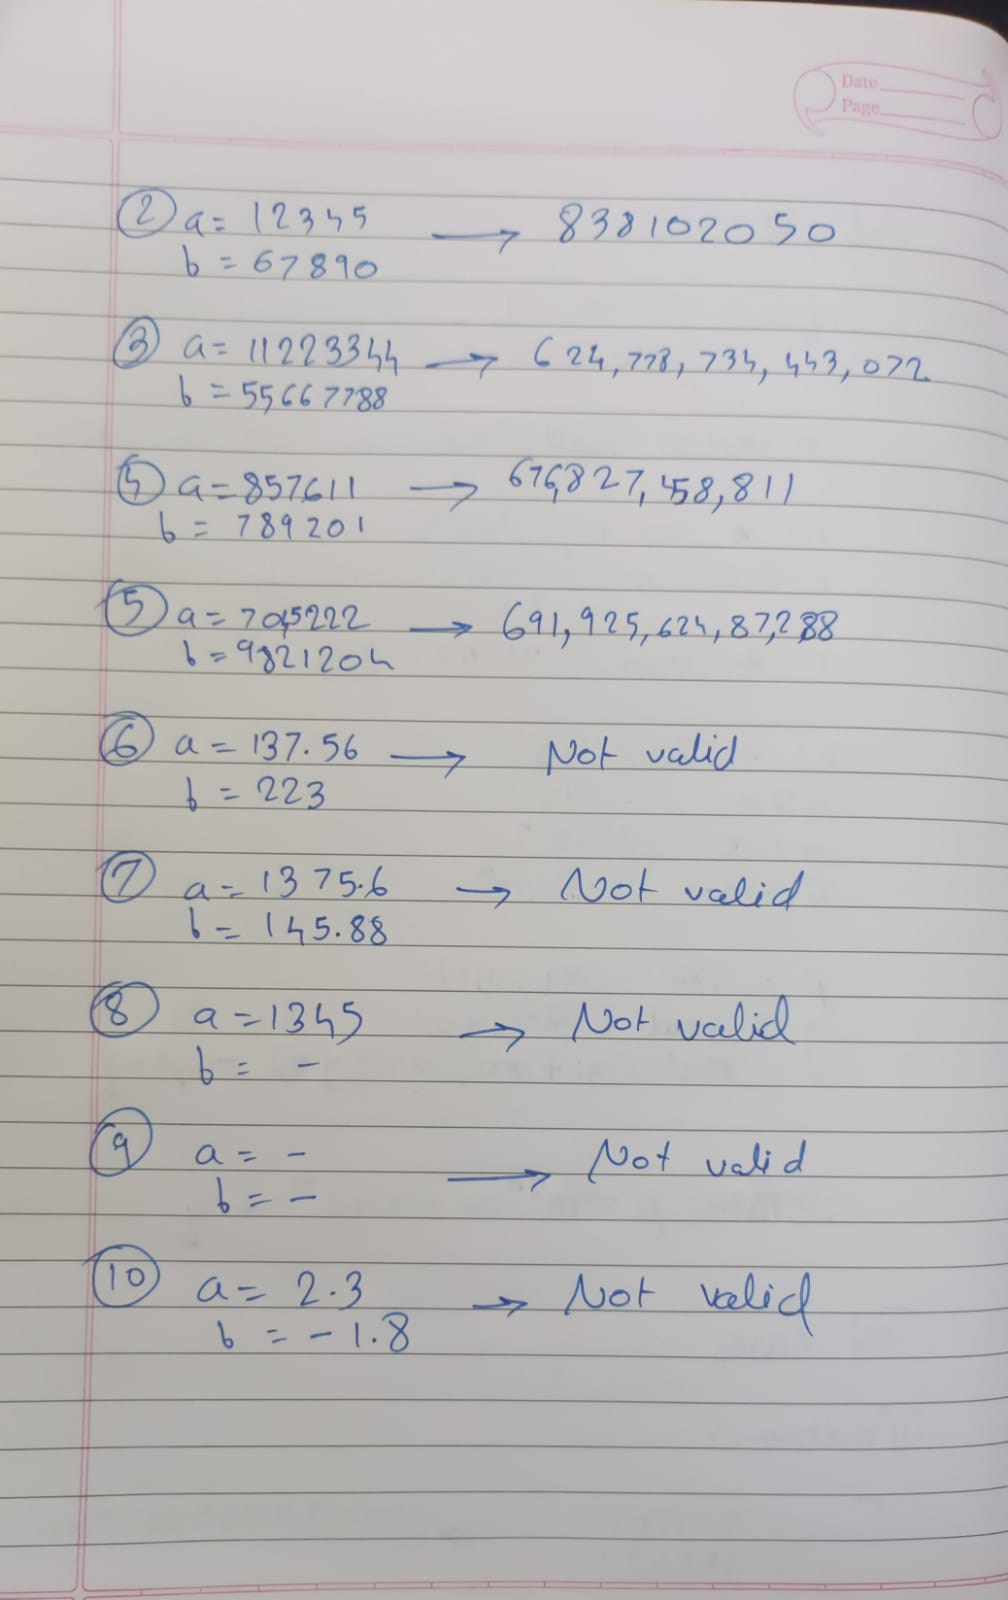 Date
Page
② a = 12345 → 838102050
b = 67890
③ a = 11223344 → 624,778,734,443,072
b = 55667788
④ a = 857611 → 676,827,458,811
b = 789201
⑤ a = 7045222 → 691,925,624,87,288
b = 9821204
⑥ a = 137.56 → Not valid
b = 223
⑦ a = 1375.6 → Not valid
b = 145.88
⑧ a = 1345 → Not valid
b = -
⑨ a = - → Not valid
b = -
⑩ a = 2.3 → Not valid
b = -1.8